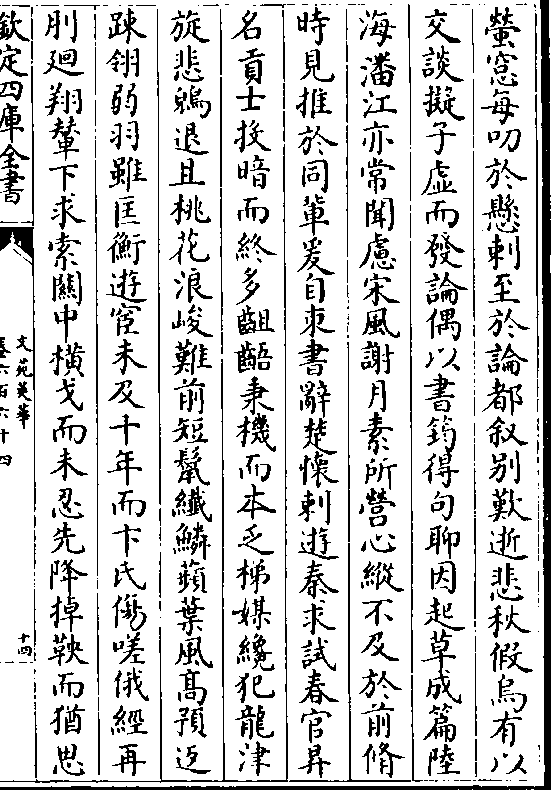 螢窓每叨於懸刺至於論都叙别歎逝悲秋假烏有以
交談擬子虚而發論偶以書筠得句聊因起草成篇陸
海潘江亦常聞慮宋風謝月素所營心縱不及於前脩
時見推於同輩爰自束書辭楚懷刺遊秦求試春官昇
名貢士投暗而終多齟齬秉機而本乏梯媒纔犯龍津
旋悲鷁退且桃花浪峻難前短鬛纎鱗蘋葉風髙預返
疎翎弱羽雖匡衡遊宦未及十年而卞氏傷嗟俄經再
刖廻翔輦下求索闗中横戈而未忍先降掉鞅而猶思
欽定四庫全書
文苑英華
卷六百六十四
十四